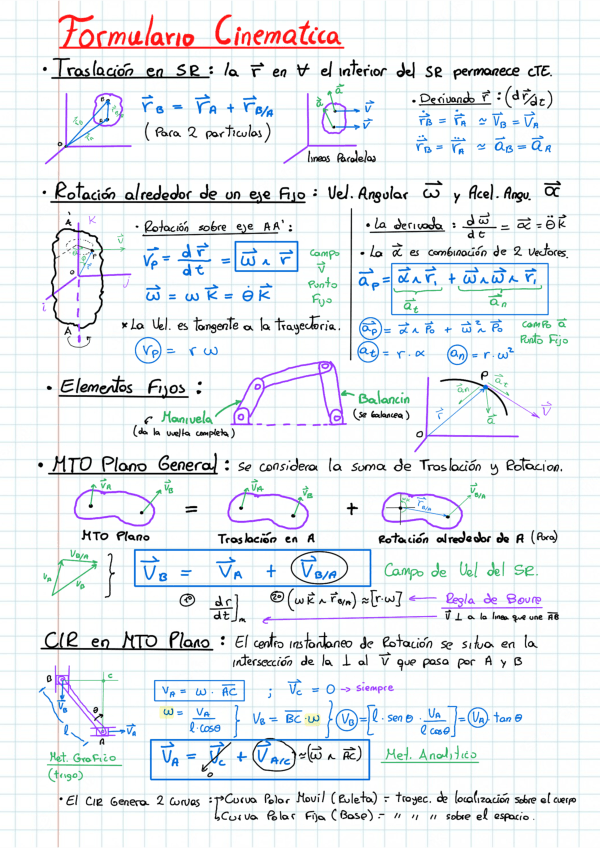 Formulario Cinematica
· Traslación en SR : la r⃗ en ∀ el interior del SR permanece cTE.
r⃗B = r⃗A + r⃗B/A
(Para 2 particulas)
a⃗
a⃗
v⃗
v⃗
lineas Paralelas
· Derivando r⃗ : (dr⃗/dt)
ṙB = ṙA ≃ V⃗B = V⃗A
r̈B = r̈A ≃ a⃗B = a⃗A
· Rotación alrededor de un eje Fijo : Vel. Angular ω⃗ y Acel. Angu. α⃗
A'
K
J
i
A
· Rotación sobre eje AA' :
V⃗P = dr⃗/dt = ω⃗ ∧ r⃗
Campo V⃗ Punto Fijo
ω⃗ = ω K⃗ = θ̇ K⃗
* La Vel. es tangente a la trayectoria.
VP = r ω
· La derivada : dω⃗/dt = α⃗ = θ̈ K⃗
· La α⃗ es combinación de 2 vectores.
a⃗P = α⃗ ∧ r⃗, + ω⃗ ∧ ω⃗ ∧ r⃗,
a⃗t
a⃗n
a⃗P = α⃗ ∧ r⃗o + ω² r⃗o
Campo a⃗ Punto Fijo
at = r · α
an = r · ω²
· Elementos Fijos :
Manivela
(da la vuelta completa)
Balancin
(se balancea)
P
a⃗t
a⃗n
r⃗
a⃗
V⃗
O
· MTO Plano General : se considera la suma de Traslación y Rotacion.
V⃗A
V⃗B
=
V⃗A
V⃗B
+
r⃗B/A
V⃗B/A
MTO Plano
Traslación en A
Rotación alrededor de A (Para)
VB/A
VA
VB
V⃗B = V⃗A + V⃗B/A
Campo de Vel del SR.
1º dr/dt]m
2º (ωK⃗ ∧ r⃗B/A) ≈ [r·ω] ← Regla de Bours
V⃗ ⊥ a la linea que une AB
CIR en MTO Plano : El centro instantaneo de Rotación se situa en la
intersección de la ⊥ al V⃗ que pasa por A y B
B
C
V⃗B
θ
l
A
V⃗A
Met. Grafico
(trigo)
VA = ω · AC ; V⃗C = 0 → siempre
ω = VA / l·cosθ } VB = BC · ω } VB = [l · senθ · VA / l cosθ] = VA tan θ
V⃗A = V⃗C + V⃗A/C ≈ (ω⃗ ∧ AC)
O
Met. Analitico
· El CIR Genera 2 curvas : → Curva Polar Movil (Ruleta) = trayec. de localización sobre el cuerpo
→ Curva Polar Fija (Base) = " " " sobre el espacio.